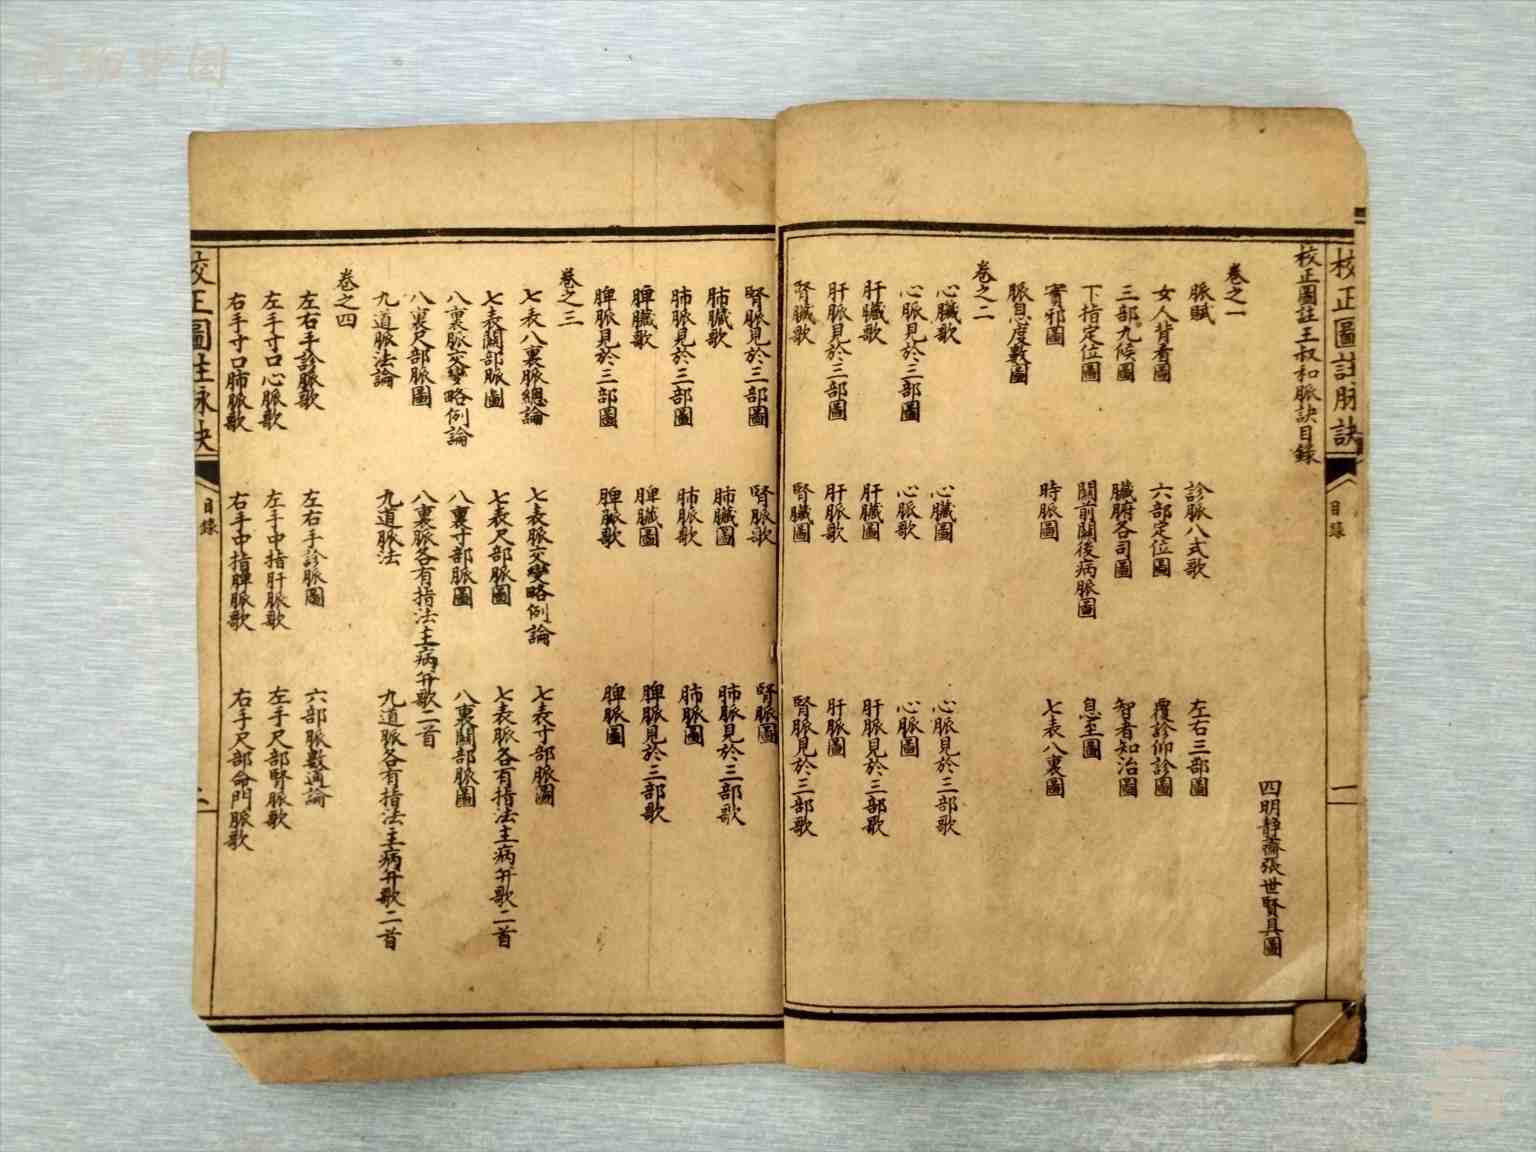 校正圖註脉訣
目錄
一
校正圖註王叔和脈訣目錄
四明靜齋張世賢具圖
卷之一
脈賦
診脈八式歌
左右三部圖
女人背看圖
六部定位圖
覆診仰診圖
三部九候圖
臟腑各司圖
智者知治圖
下指定位圖
關前關後病脈圖
息至圖
賓邪圖
時脈圖
七表八裏圖
脈息度數圖
卷之二
心臟歌
心臟圖
心脈見於三部歌
心脈見於三部圖
心脈歌
心脈圖
肝臟歌
肝臟圖
肝脈見於三部歌
肝脈見於三部圖
肝脈歌
肝脈圖
腎臟歌
腎臟圖
腎脈見於三部歌
腎脈見於三部圖
腎脈歌
腎脈圖
肺臟歌
肺臟圖
肺脈見於三部歌
肺脈見於三部圖
肺脈歌
肺脈圖
脾臟歌
脾臟圖
脾脈見於三部歌
脾脈見於三部圖
脾脈歌
脾脈圖
卷之三
七表八裏脈總論
七表脈交變略例論
七表寸部脈圖
七表關部脈圖
七表尺部脈圖
七表脈各有指法主病并歌二首
八裏脈交變略例論
八裏寸部脈圖
八裏關部脈圖
八裏尺部脈圖
八裏脈各有指法主病并歌二首
九道脈法論
九道脈法
九道脈各有指法主病并歌二首
卷之四
左右手診脈歌
左右手診脈圖
六部脈數通論
左手寸口心脈歌
左手中指肝脈歌
左手尺部腎脈歌
右手寸口肺脈歌
右手中指脾脈歌
右手尺部命門脈歌
校正圖註脉訣
目錄
二